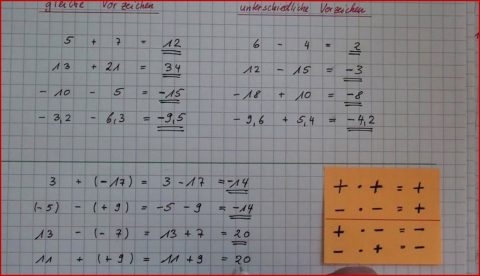 gleiche Vorzeichen
5 + 7 = 12
13 + 21 = 34
- 10 - 5 = -15
- 3,2 - 6,3 = -9,5
unterschiedliche Vorzeichen
6 - 4 = 2
12 - 15 = -3
- 18 + 10 = -8
- 9,6 + 5,4 = -4,2
3 + (-17) = 3 - 17 = -14
(-5) - (+9) = -5 - 9 = -14
13 - (-7) = 13 + 7 = 20
11 + (+9) = 11 + 9 = 20
+ · + = +
- · - = +
+ · - = -
- · + = -